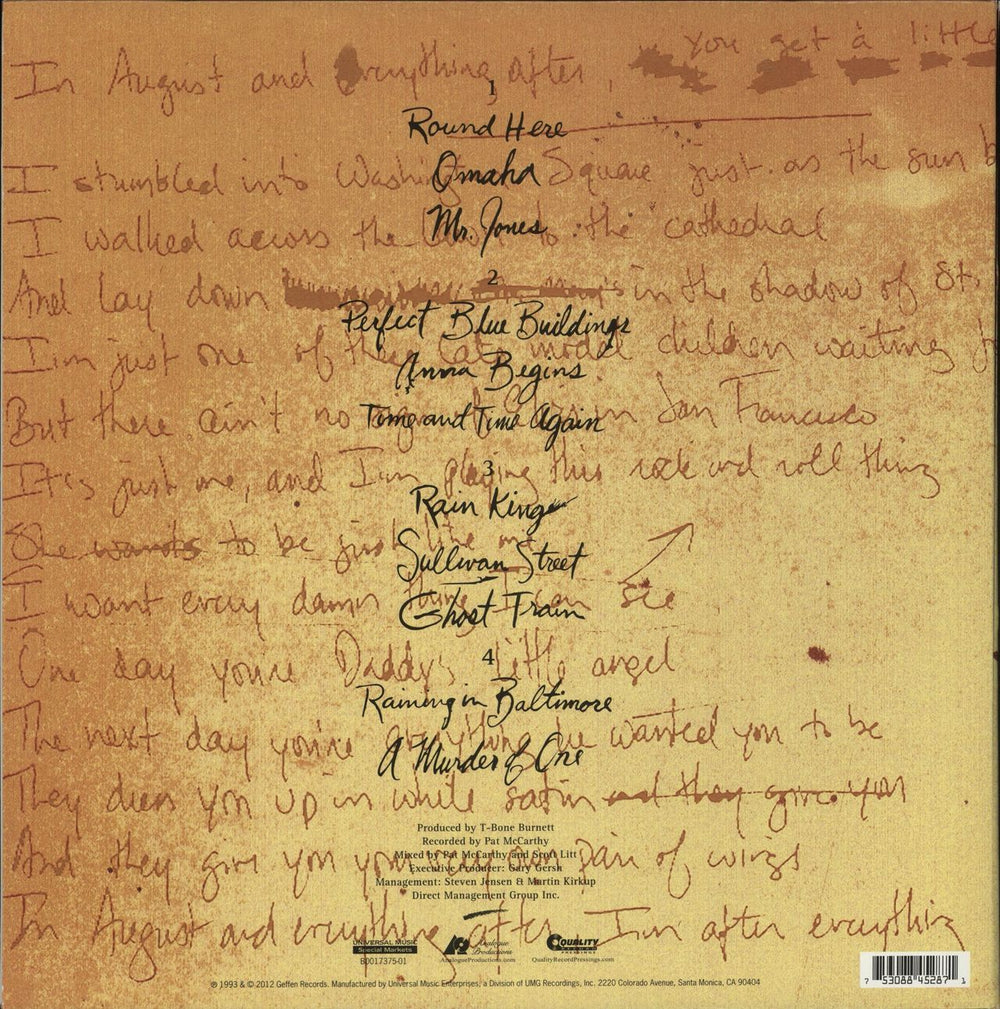 you get a little
In August and everything after,
1
Round Here
I stumbled into Washington Square just as the sun b
Omaha
I walked across the to the cathedral
Mr. Jones
2
And lay down in the shadow of St.
Perfect Blue Buildings
I'm just one of these late model children waiting f
Anna Begins
But there ain't no in San Francisco
Time and Time Again
3
It's just me, and I'm playing this rock and roll thing
Rain King
She wants to be just like me
Sullivan Street
I want every damn thing I can see
Ghost Train
4
One day you're Daddy's little angel
Raining in Baltimore
The next day you're everything he wanted you to be
A Murder of One
They dress you up in white satin and they give you
Produced by T-Bone Burnett
Recorded by Pat McCarthy
Mixed by Pat McCarthy and Scott Litt
And they give you your very own pair of wings
Executive Producer: Gary Gersh
Management: Steven Jensen & Martin Kirkup
Direct Management Group Inc.
In August and everything after I'm after everything
UNIVERSAL MUSIC
Special Markets
B0017375-01
Analogue
Productions
AnalogueProductions.com
QUALITY
RECORD
PRESSINGS
QualityRecordPressings.com
7 53088 45287 1
℗ 1993 & © 2012 Geffen Records. Manufactured by Universal Music Enterprises, a Division of UMG Recordings, Inc. 2220 Colorado Avenue, Santa Monica, CA 90404